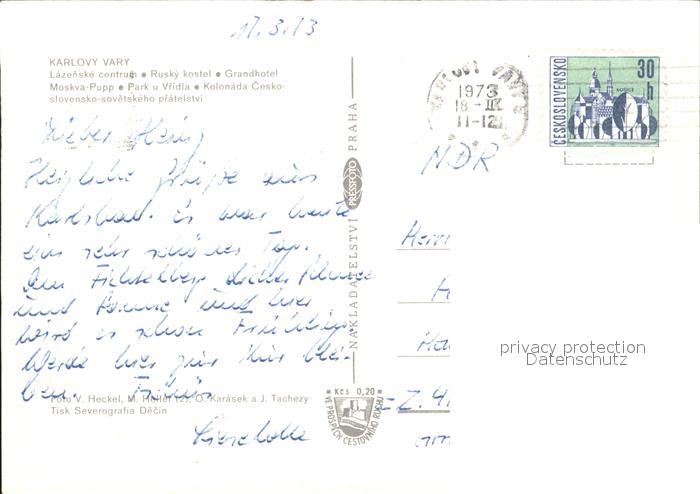 17.3.73
KARLOVY VARY
Lázeňské centrum • Ruský kostel • Grandhotel
Moskva-Pupp • Park u Vřídla • Kolonáda Česko-
slovensko-sovětského přátelství
Lieber Heinz
Herzliche Grüße aus
Karlsbad. Es war heute
ein sehr schöner Tag.
Am Fichtelberg dichter
und Sonne und hier
wird es schon Frühling.
Werde hier zur Kur blei-
ben.
Foto V. Heckel, M. Heller (2), O. Karásek a J. Tachezy
Tisk Severografia Děčín
NAKLADATELSTVÍ PRESSFOTO PRAHA
Kčs 0,20
VE PROSPĚCH CESTOVNÍHO RUCHU
KARLOVY VARY
1973
18-III
11-12
ČESKOSLOVENSKO
30 h
KOŠICE
NDR
Herrn
privacy protection
Datenschutz